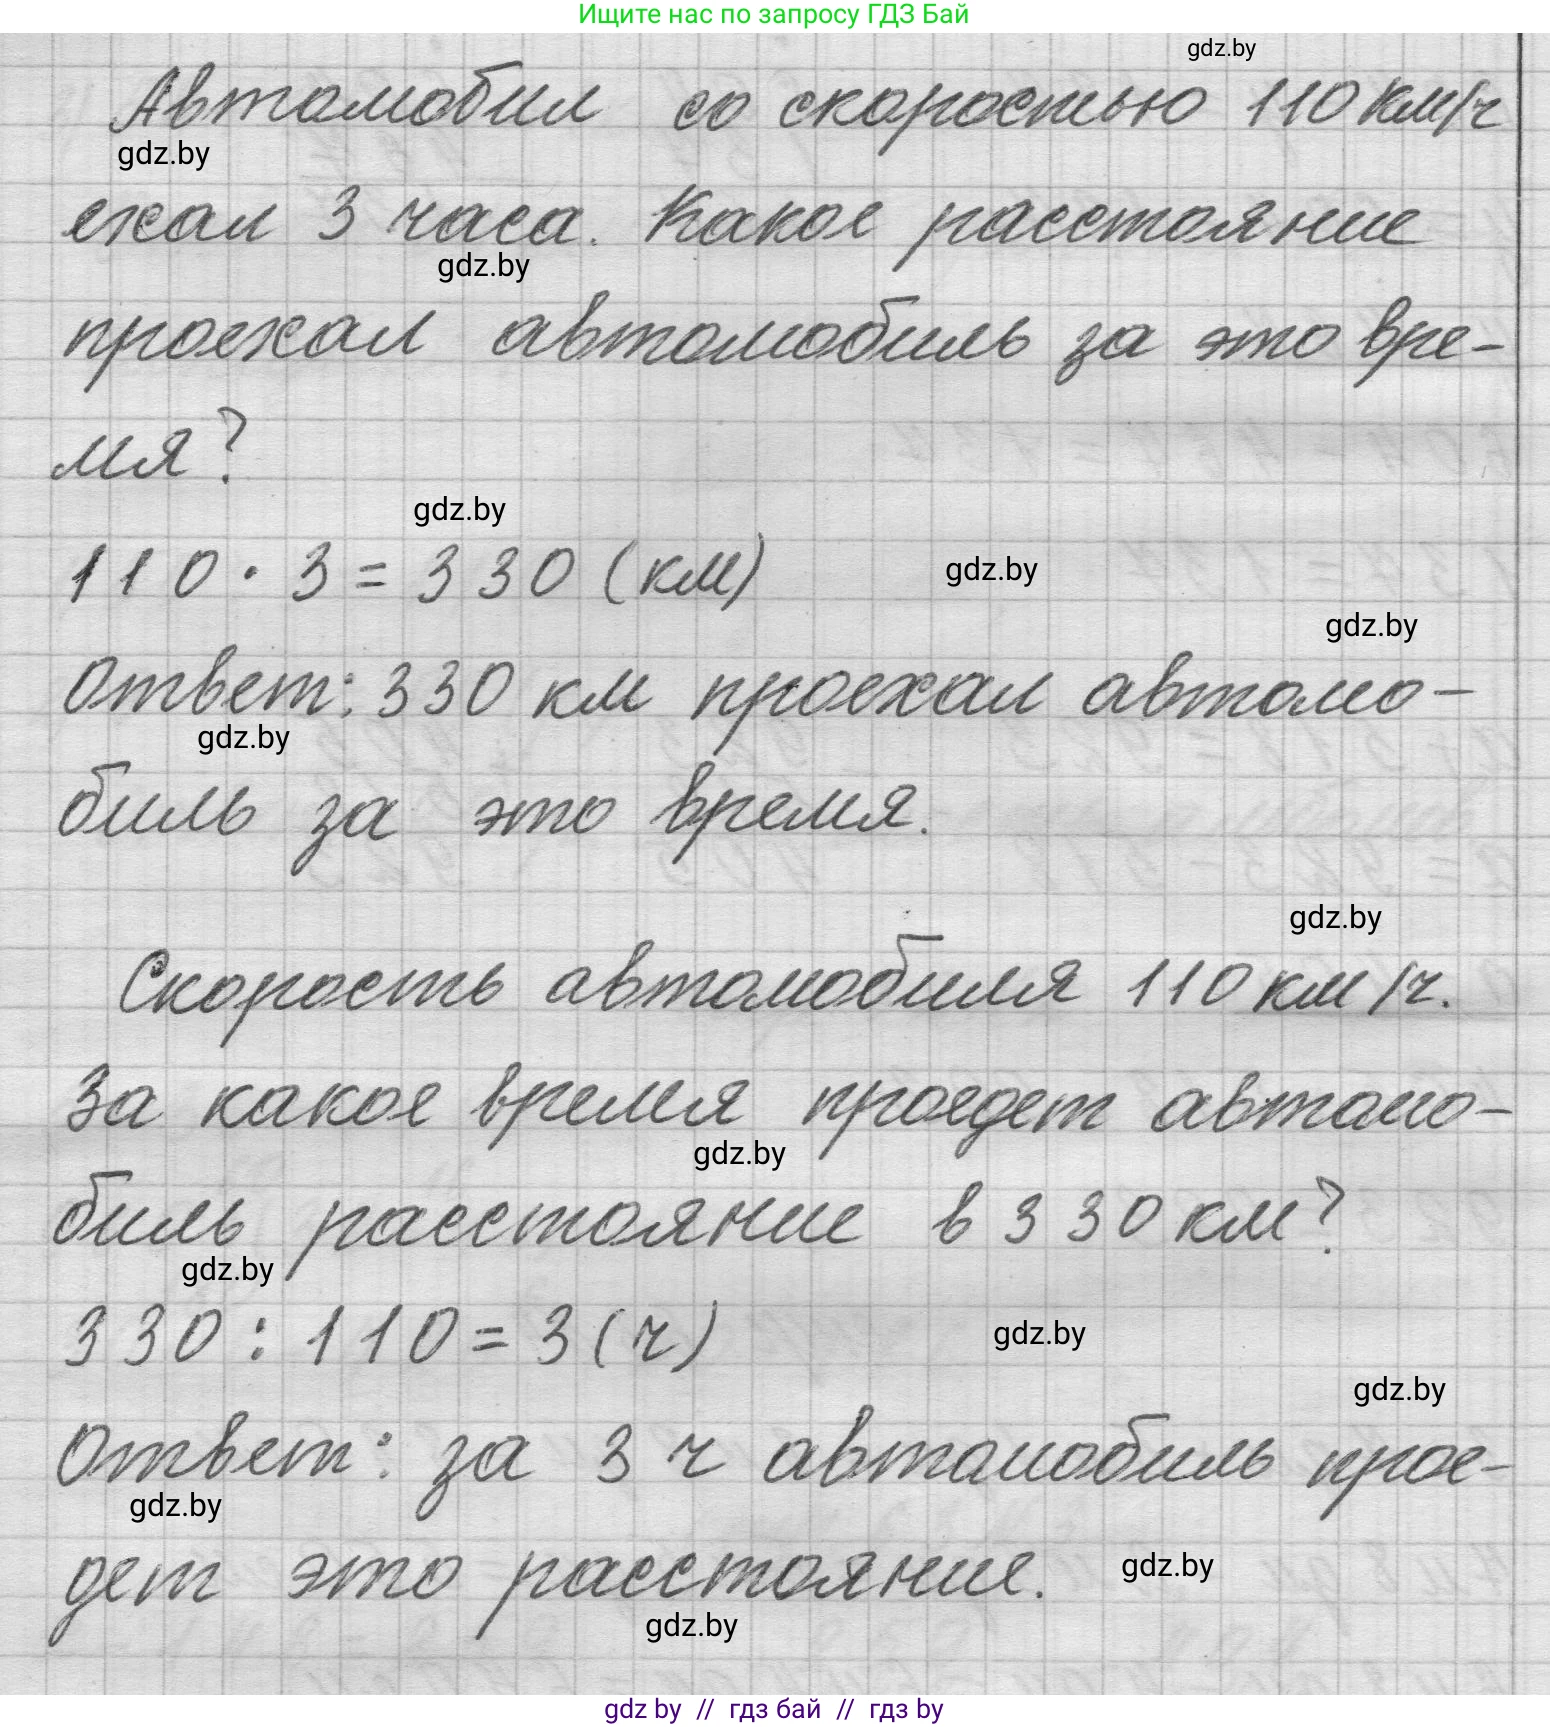 Ищите нас по запросу ГДЗ Бай
gdz.by
Автомобил со скоростью 110 км/ч
gdz.by
ехал 3 часа. Какое расстояние
gdz.by
проехал автомобиль за это вре-
мя?
gdz.by
110 · 3 = 330 (км)
gdz.by
gdz.by
Ответ: 330 км проехал автомо-
gdz.by
биль за это время.
gdz.by
Скорость автомобиля 110 км/ч.
За какое время проедет автомо-
gdz.by
биль расстояние в 330 км?
gdz.by
330 : 110 = 3 (ч)
gdz.by
gdz.by
Ответ: за 3 ч автомобиль прое-
gdz.by
дет это расстояние.
gdz.by
gdz.by
gdz by // гдз бай // гдз by